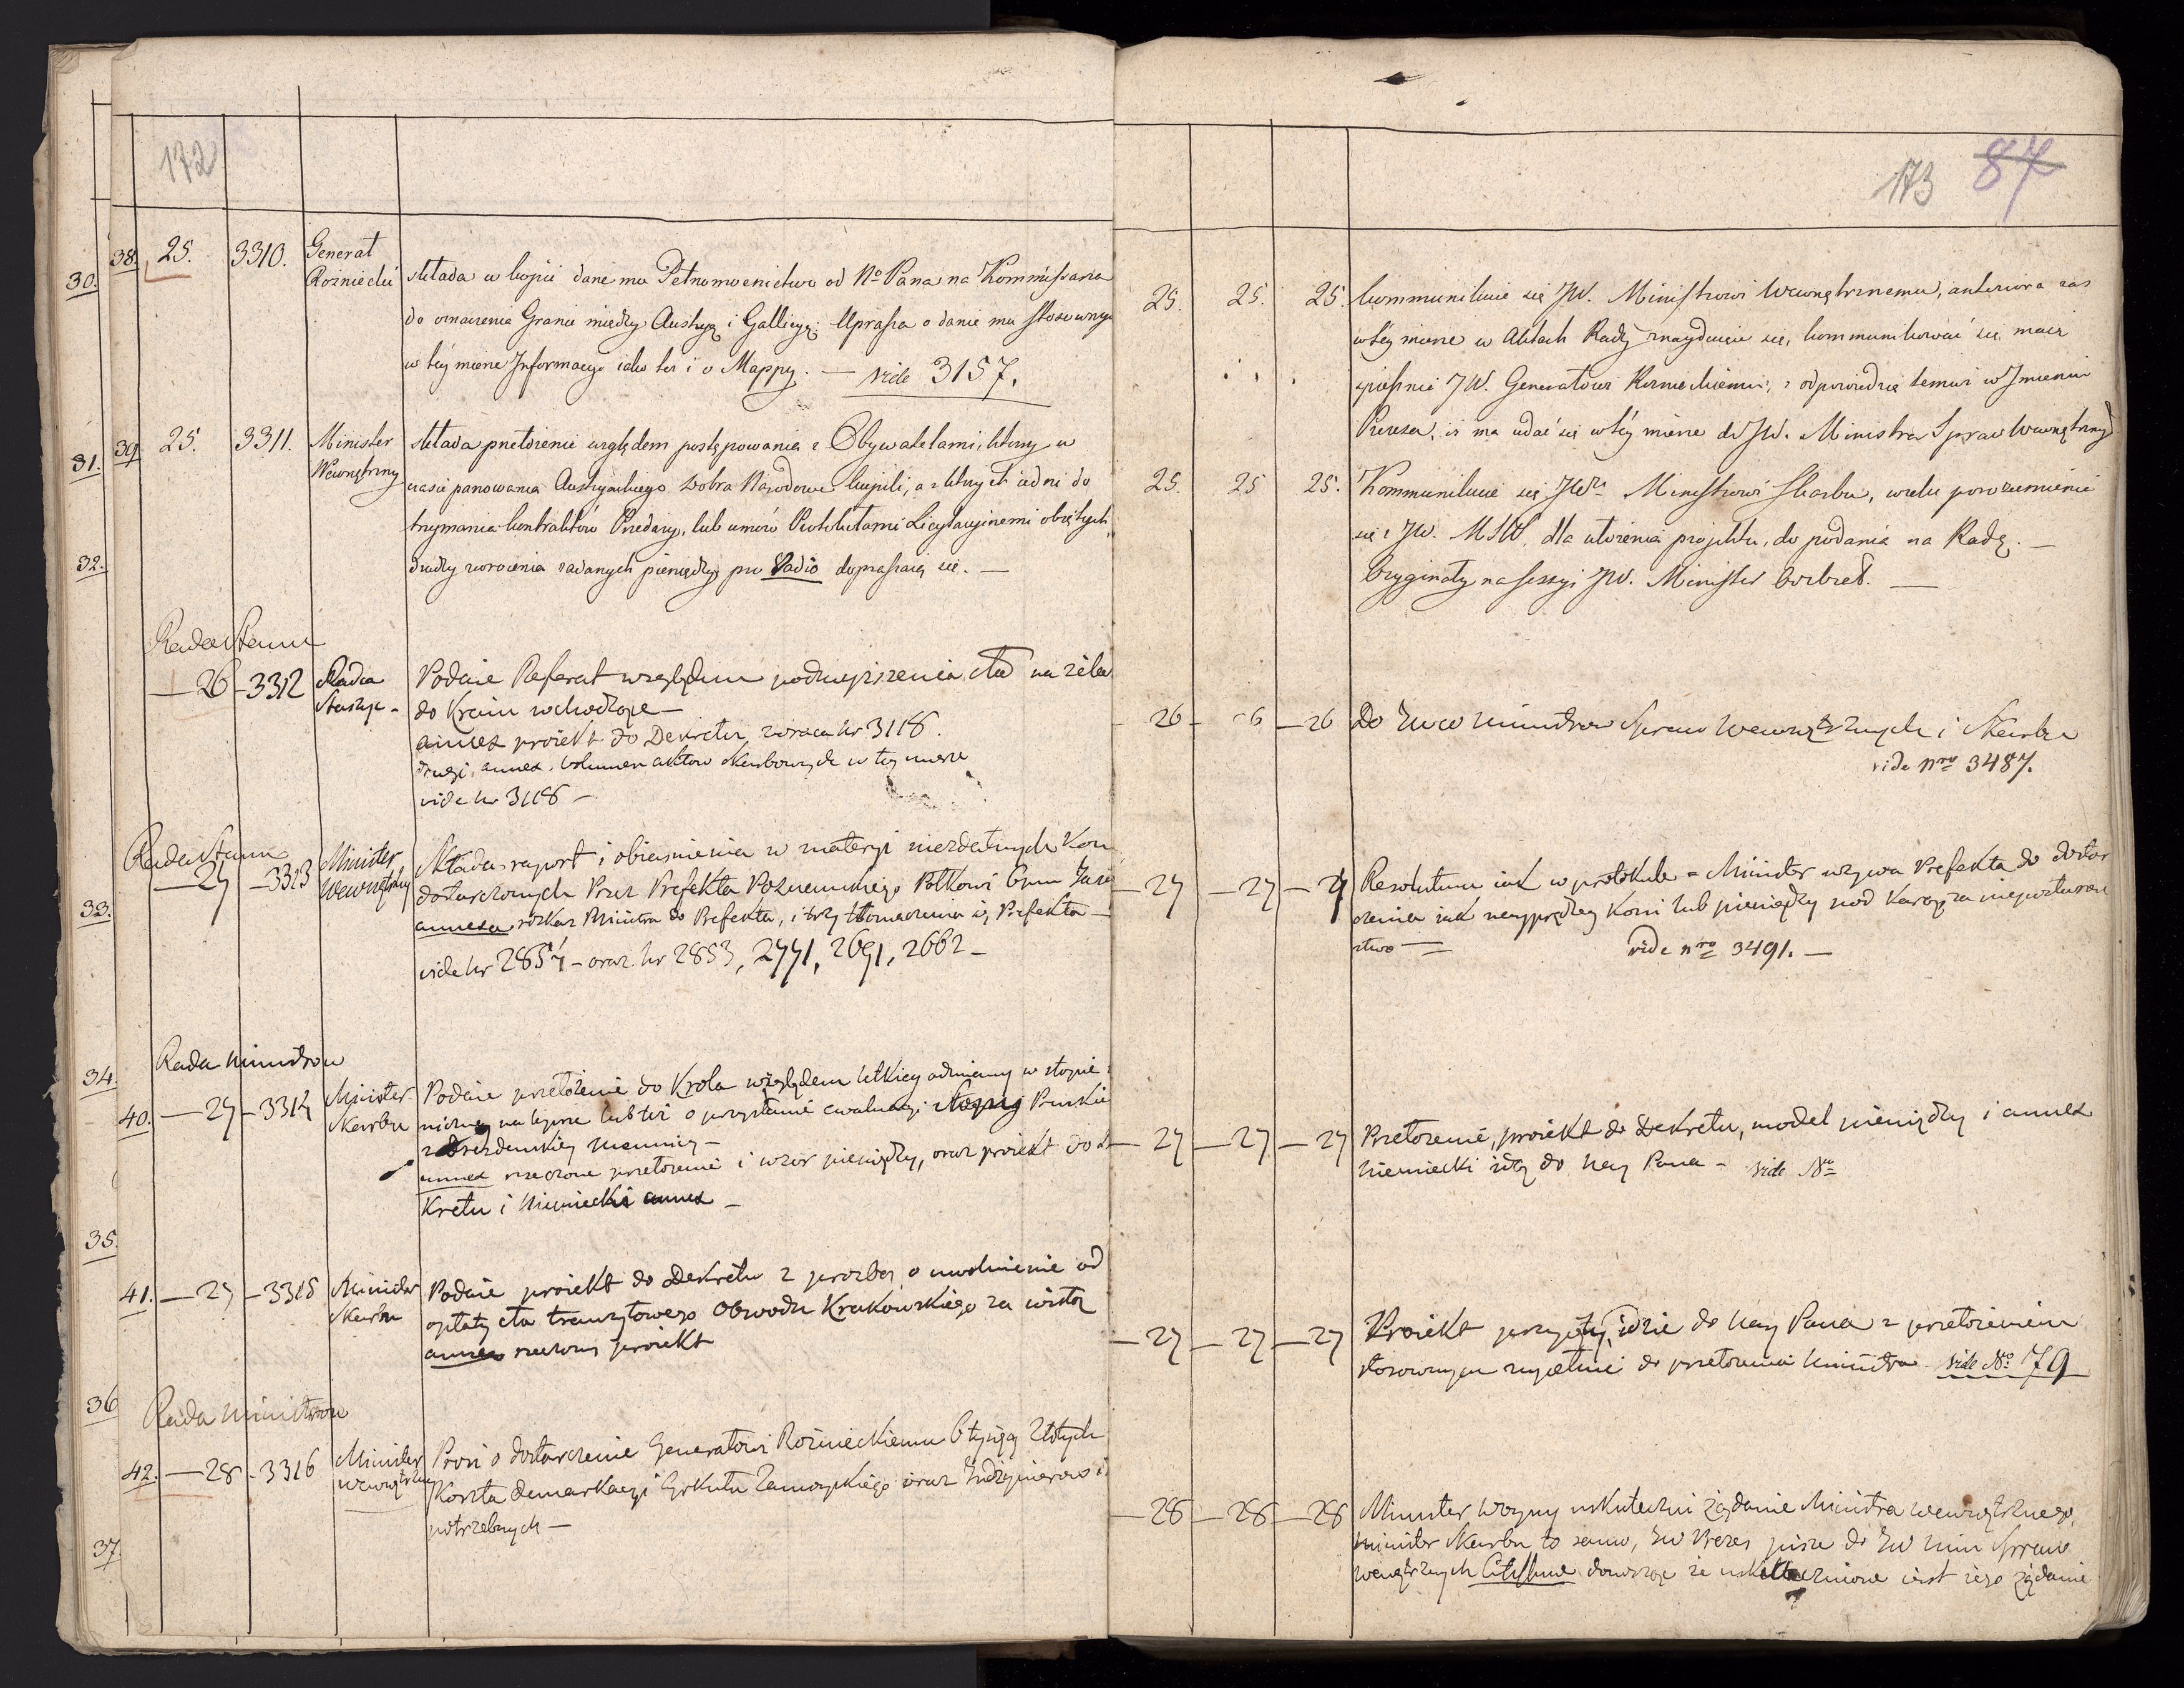 172
30.
31.
32.
33.
34.
35.
36
37.
38. 25. 3310. Generał Rozniecki
składa w kopii dane mu Pełnomocnictwo od No Pana na Kommissarza
do oznaczenia Granic między Austryą i Gallicyą; Uprasza o danie mu stosownych
w tey mierze Informacyi iako też i o Mappy. — vide 3157.
39 25. 3311. Minister Wewnętrzny
składa przełożenie względem postępowania z Obywatelami, którzy w
czasie panowania Austryackiego Dobra Narodowe kupili, a z których iedni do
trzymania kontraktów Przedaży, lub umów Protokułami Licytacyinemi obiętych,
drudzy zwrócenia zadanych pieniędzy pro Vadio dopraszaią się. —
Rada Stanu
— 26 - 3312 Radca Staszyc -
Podaie Referat względem podwyższenia cła na żela
do Kraiu wchodzące —
annex proiekt do Dekretu, zwraca nr 3118.
drugi, annex, Volumen aktow skarbowych w tey mierze
vide nr 3118 —
Rada Stanu
— 27 - 3313 Minister Wewnętrzny
Składa raport i obiasnienia w materyi niezdatnych Kon
dostarczonych Przez Prefekta Poznanskiego Półkowi
annexa rozkaz Ministra do Prefekta, i trzy tłomaczenia się Prefekta —
vide nr 2857 - oraz nr 2853, 2771, 2691, 2662 —
Rada Ministrow
40. — 27 - 3314 Minister Skarbu
Podaie przełożenie do Krola względem lekkiey odmiany w stopie
niczney na lepsze lub też o przysłanie ewaluacyi Pruskie
z drezdenskiey mennicy —
annex rzeczone przełożenie i wzor pieniędzy, oraz proiekt do de
kretu i Niemiecki annex —
41. — 27 - 3315 Minister Skarbu
Podaie proiekt do Dekretu z prozbą o uwolnienie od
opłaty cła tranzytowego Obwodu Krakowskiego za wisłą
annex rzeczony proiekt
Rada Ministrow
42. — 28 - 3316 Minister wewnętrzny
Prosi o dostarczenie Generałowi Rożnieckiemu 6 tysięcy Złotych
Koszta demarkacyi Cyrkułu Zamoyskiego oraz Indżynierow i
potrzebnych —
173 87
25. 25. 25. kommunikuie się JW. Ministrowi Wewnętrznemu, anteriora zas
w tey mierze w Aktach Rady znayduiące się, kommunikować się maią
spiesznie JW. Generałowi Roznieckiemu, i odpowiedzieć temuż w Imieniu
Prezesa, iż ma udać się w tey mierze do JW. Ministra Spraw Wewnętrznych
25. 25 25. Kommunikuie się JWu Ministrowi Skarbu, w celu porozumienia
się z JW. MSW, dla ułożenia projektu, do podania na Radę. —
Oryginały na sessyi JW. Minister odebrał. —
- 26 - 26 - 26 Do JWW Ministrow Spraw Wewnętrznych i Skarbu
vide nro 3487.
— 27 — 27 — 27 Resolutum iak w protokule = Minister wzywa Prefekta do dostar
czenia iak nayprędzey Koni lub pieniędzy pod karą za nieposłuszen
stwo — vide nro 3491. —
— 27 — 27 — 27 Przełożenie, proiekt do Dekretu, model pieniędzy i annex
niemiecki idą do Nay Pana - vide No
— 27 — 27 — 27 Proiekt przyięty, idzie do Nay Pana z przełożeniem
stosownym zupełnie do przełożenia Ministra vide No 79
— 28 — 28 — 28 Minister Woyny uskuteczni żądanie Ministra wewnętrznego,
minister Skarbu to samo, JW Prezes pisze do JW Min Spraw
wewnętrznych donosząc że uskutecznione iest iego żądanie